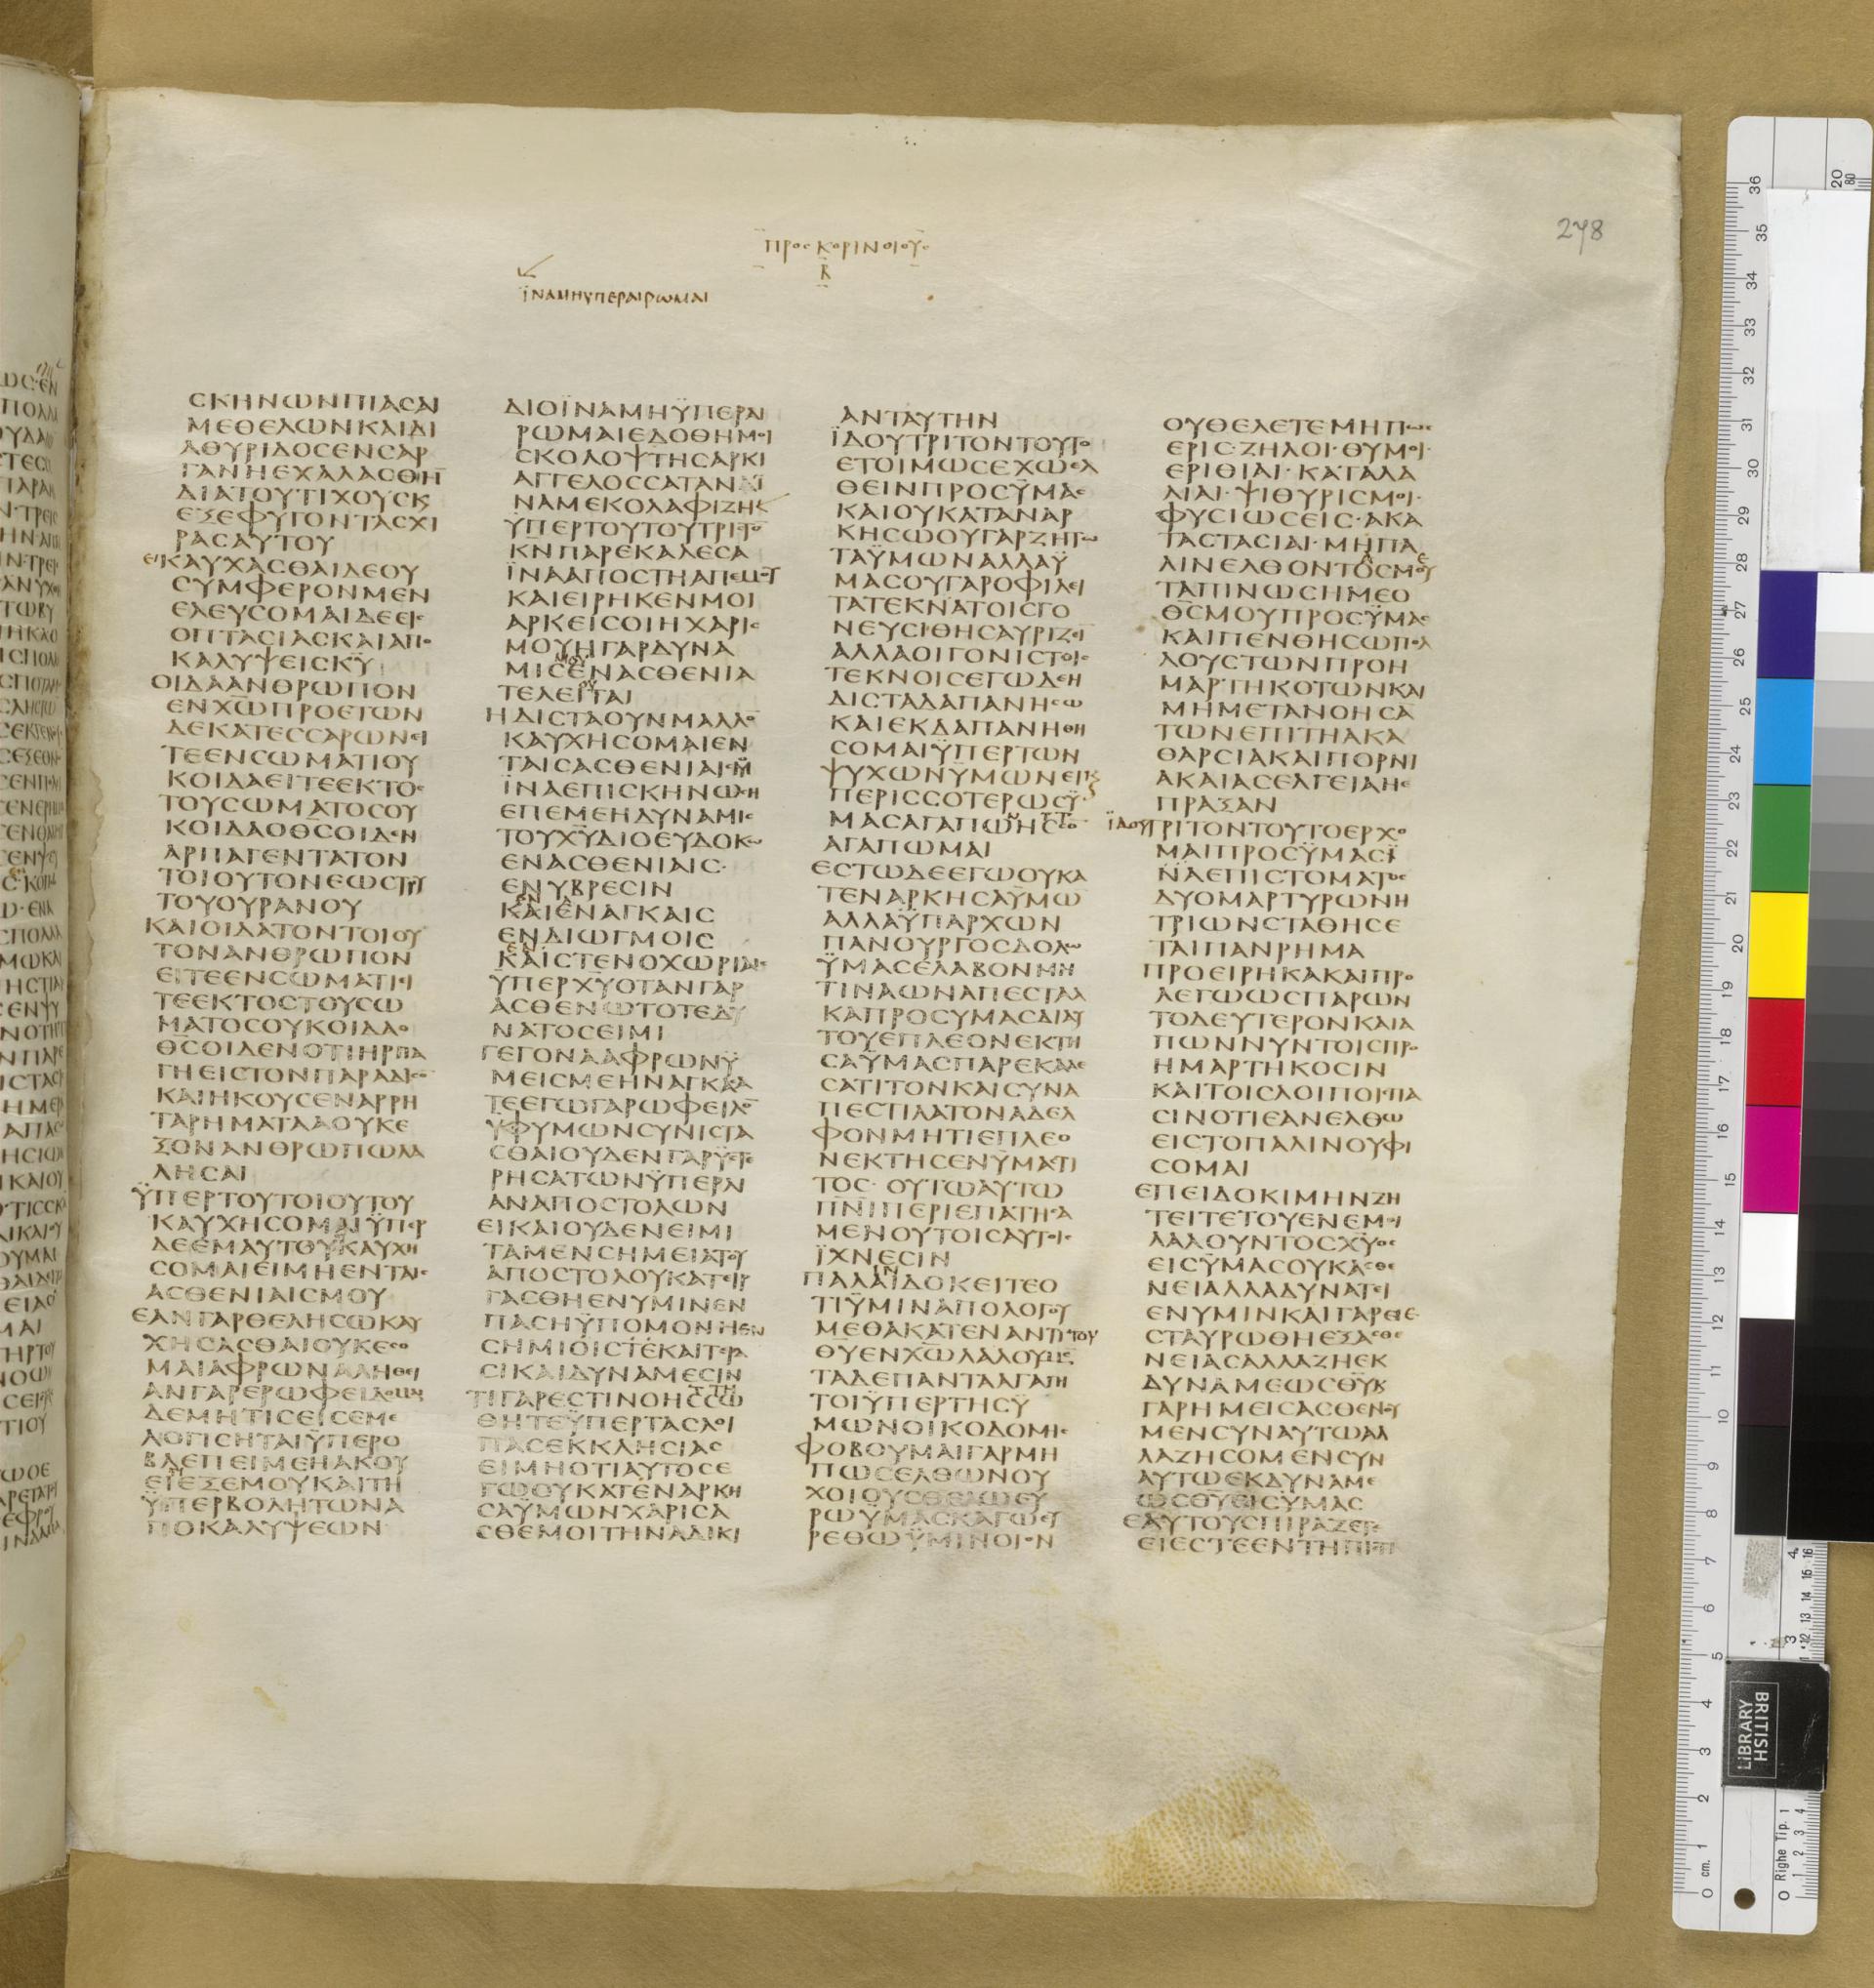 278
ΠΡΟΣ ΚΟΡΙΝΘΙΟΥΣ
Β
ΪΝΑΜΗΥΠΕΡΑΙΡΩΜΑΙ
ϹΚΗΝΩΝΠΙΑϹΑΙ
ΜΕΘΕΛΩΝΚΑΙΔΙ
ΑΘΥΡΙΔΟϹΕΝϹΑΡ
ΓΑΝΗΕΧΑΛΑϹΘΗ
ΔΙΑΤΟΥΤΙΧΟΥϹΚ
ΕΞΕΦΥΓΟΝΤΑϹΧΙ
ΡΑϹΑΥΤΟΥ
ΕΙΚΑΥΧΑϹΘΑΙΔΕΟΥ
ϹΥΜΦΕΡΟΝΜΕΝ
ΕΛΕΥϹΟΜΑΙΔΕΕΙϹ
ΟΠΤΑϹΙΑϹΚΑΙΑΠΟ
ΚΑΛΥΨΕΙϹΚΥ
ΟΙΔΑΑΝΘΡΩΠΟΝ
ΕΝΧΩΠΡΟΕΤΩΝ
ΔΕΚΑΤΕϹϹΑΡΩΝΕΙ
ΤΕΕΝϹΩΜΑΤΙΟΥ
ΚΟΙΔΑΕΙΤΕΕΚΤΟϹ
ΤΟΥϹΩΜΑΤΟϹΟΥ
ΚΟΙΔΑΟΘϹΟΙΔΕΝ
ΑΡΠΑΓΕΝΤΑΤΟΝ
ΤΟΙΟΥΤΟΝΕΩϹΤΡΙ
ΤΟΥΟΥΡΑΝΟΥ
ΚΑΙΟΙΔΑΤΟΝΤΟΙΟΥ
ΤΟΝΑΝΘΡΩΠΟΝ
ΕΙΤΕΕΝϹΩΜΑΤΙΕΙ
ΤΕΕΚΤΟϹΤΟΥϹΩ
ΜΑΤΟϹΟΥΚΟΙΔΑΟ
ΘϹΟΙΔΕΝΟΤΙΗΡΠΑ
ΓΗΕΙϹΤΟΝΠΑΡΑΔΙϹΟ
ΚΑΙΗΚΟΥϹΕΝΑΡΡΗ
ΤΑΡΗΜΑΤΑΑΟΥΚΕ
ΞΟΝΑΝΘΡΩΠΩΛΑ
ΛΗϹΑΙ
ΫΠΕΡΤΟΥΤΟΙΟΥΤΟΥ
ΚΑΥΧΗϹΟΜΑΙΫΠΕΡ
ΔΕΕΜΑΥΤΟΥΟΥΚΑΥΧΗ
ϹΟΜΑΙΕΙΜΗΕΝΤΑΙϹ
ΑϹΘΕΝΙΑΙϹΜΟΥ
ΕΑΝΓΑΡΘΕΛΗϹΩΚΑΥ
ΧΗϹΑϹΘΑΙΟΥΚΕϹΟ
ΜΑΙΑΦΡΩΝΑΛΗΘΕΙ
ΑΝΓΑΡΕΡΩΦΕΙΔΟΜΑΙ
ΔΕΜΗΤΙϹΕΙϹΕΜΕ
ΛΟΓΙϹΗΤΑΙΫΠΕΡΟ
ΒΛΕΠΕΙΜΕΗΑΚΟΥ
ΕΙΕΞΕΜΟΥΚΑΙΤΗ
ΫΠΕΡΒΟΛΗΤΩΝΑ
ΠΟΚΑΛΥΨΕΩΝ
ΔΙΟΪΝΑΜΗΫΠΕΡΑΙ
ΡΩΜΑΙΕΔΟΘΗΜΟΙ
ϹΚΟΛΟΨΤΗϹΑΡΚΙ
ΑΓΓΕΛΟϹϹΑΤΑΝΑΪ
ΝΑΜΕΚΟΛΑΦΙΖΗ
ΫΠΕΡΤΟΥΤΟΥΤΡΙΤΟ
ΚΝΠΑΡΕΚΑΛΕϹΑ
ΪΝΑΑΠΟϹΤΗΑΠΕΜΟΥ
ΚΑΙΕΙΡΗΚΕΝΜΟΙ
ΑΡΚΕΙϹΟΙΗΧΑΡΙϹ
ΜΟΥΗΓΑΡΔΥΝΑ
ΜΙϹΕΝΑϹΘΕΝΙΑ
ΤΕΛΕΙΤΑΙ
ΗΔΙϹΤΑΟΥΝΜΑΛΛΟ
ΚΑΥΧΗϹΟΜΑΙΕΝ
ΤΑΙϹΑϹΘΕΝΙΑΙϹΜΟΥ
ΪΝΑΕΠΙϹΚΗΝΩϹΗ
ΕΠΕΜΕΗΔΥΝΑΜΙϹ
ΤΟΥΧΥΔΙΟΕΥΔΟΚΩ
ΕΝΑϹΘΕΝΙΑΙϹ·
ΕΝΥΒΡΕϹΙΝ
ΚΑΙΕΝΑΓΚΑΙϹ
ΕΝΔΙΩΓΜΟΙϹ
ΚΑΙϹΤΕΝΟΧΩΡΙΑΙϹ
ΫΠΕΡΧΥΟΤΑΝΓΑΡ
ΑϹΘΕΝΩΤΟΤΕΔΥ
ΝΑΤΟϹΕΙΜΙ
ΓΕΓΟΝΑΑΦΡΩΝΫ
ΜΕΙϹΜΕΗΝΑΓΚΑϹΑ
ΤΕΕΓΩΓΑΡΩΦΕΙΛΟ
ΥΦΥΜΩΝϹΥΝΙϹΤΑ
ϹΘΑΙΟΥΔΕΝΓΑΡΫϹΤΕ
ΡΗϹΑΤΩΝΫΠΕΡΛΙ
ΑΝΑΠΟϹΤΟΛΩΝ
ΕΙΚΑΙΟΥΔΕΝΕΙΜΙ
ΤΑΜΕΝϹΗΜΕΙΑΤΟΥ
ΑΠΟϹΤΟΛΟΥΚΑΤΕΙΡ
ΓΑϹΘΗΕΝΥΜΙΝΕΝ
ΠΑϹΗΫΠΟΜΟΝΗΕΝ
ϹΗΜΙΟΙϹΤΕΚΑΙΤΕΡΑ
ϹΙΚΑΙΔΥΝΑΜΕϹΙΝ
ΤΙΓΑΡΕϹΤΙΝΟΗϹϹΩ
ΘΗΤΕΫΠΕΡΤΑϹΛΟΙ
ΠΑϹΕΚΚΛΗϹΙΑϹ
ΕΙΜΗΟΤΙΑΥΤΟϹΕ
ΓΩΟΥΚΑΤΕΝΑΡΚΗ
ϹΑΫΜΩΝΧΑΡΙϹΑ
ϹΘΕΜΟΙΤΗΝΑΔΙΚΙ
ΑΝΤΑΥΤΗΝ
ΪΔΟΥΤΡΙΤΟΝΤΟΥΤΟ
ΕΤΟΙΜΩϹΕΧΩΕΛ
ΘΕΙΝΠΡΟϹΫΜΑϹ
ΚΑΙΟΥΚΑΤΑΝΑΡ
ΚΗϹΩΟΥΓΑΡΖΗΤΩ
ΤΑΫΜΩΝΑΛΛΑΫ
ΜΑϹΟΥΓΑΡΟΦΙΛΕΙ
ΤΑΤΕΚΝΑΤΟΙϹΓΟ
ΝΕΥϹΙΘΗϹΑΥΡΙΖΕΙ
ΑΛΛΑΟΙΓΟΝΙϹΤΟΙϹ
ΤΕΚΝΟΙϹΕΓΩΔΕΗ
ΔΙϹΤΑΔΑΠΑΝΗϹΩ
ΚΑΙΕΚΔΑΠΑΝΗΘΗ
ϹΟΜΑΙΫΠΕΡΤΩΝ
ΨΥΧΩΝΫΜΩΝΕΙ
ΠΕΡΙϹϹΟΤΕΡΩϹΫ
ΜΑϹΑΓΑΠΩΗϹϹΟ
ΑΓΑΠΩΜΑΙ
ΕϹΤΩΔΕΕΓΩΟΥΚΑ
ΤΕΝΑΡΚΗϹΑΫΜΩ
ΑΛΛΑΫΠΑΡΧΩΝ
ΠΑΝΟΥΡΓΟϹΔΟΛΩ
ΫΜΑϹΕΛΑΒΟΝΜΗ
ΤΙΝΑΩΝΑΠΕϹΤΑΛ
ΚΑΠΡΟϹΥΜΑϹΔΙΑΥ
ΤΟΥΕΠΛΕΟΝΕΚΤΗ
ϹΑΫΜΑϹΠΑΡΕΚΑΛΕ
ϹΑΤΙΤΟΝΚΑΙϹΥΝΑ
ΠΕϹΤΙΛΑΤΟΝΑΔΕΛ
ΦΟΝΜΗΤΙΕΠΛΕΟ
ΝΕΚΤΗϹΕΝΫΜΑΤΙ
ΤΟϹ· ΟΥΤΩΑΥΤΩ
ΠΝΙΠΕΡΙΕΠΑΤΗϹΑ
ΜΕΝΟΥΤΟΙϹΑΥΤΟΙϹ
ΪΧΝΕϹΙΝ
ΠΑΛΑΙΔΟΚΕΙΤΕΟ
ΤΙΫΜΙΝΑΠΟΛΟΓΟΥ
ΜΕΘΑΚΑΤΕΝΑΝΤΙΤΟΥ
ΘΥΕΝΧΩΛΑΛΟΥΜΕ
ΤΑΔΕΠΑΝΤΑΑΓΑΠΗ
ΤΟΙΫΠΕΡΤΗϹΫ
ΜΩΝΟΙΚΟΔΟΜΗϹ
ΦΟΒΟΥΜΑΙΓΑΡΜΗ
ΠΩϹΕΛΘΩΝΟΥ
ΧΟΙΟΥϹΘΕΛΩΕΥ
ΡΩΫΜΑϹΚΑΓΩΕΥ
ΡΕΘΩΫΜΙΝΟΙΟΝ
ΟΥΘΕΛΕΤΕΜΗΠΩϹ
ΕΡΙϹ·ΖΗΛΟΙ·ΘΥΜΟΙ·
ΕΡΙΘΙΑΙ·ΚΑΤΑΛΑ
ΛΙΑΙ·ΨΙΘΥΡΙϹΜΟΙ·
ΦΥϹΙΩϹΕΙϹ·ΑΚΑ
ΤΑϹΤΑϹΙΑΙ·ΜΗΠΑ
ΛΙΝΕΛΘΟΝΤΟϹΜΟΥ
ΤΑΠΙΝΩϹΗΜΕΟ
ΘϹΜΟΥΠΡΟϹΫΜΑϹ
ΚΑΙΠΕΝΘΗϹΩΠΟΛ
ΛΟΥϹΤΩΝΠΡΟΗ
ΜΑΡΤΗΚΟΤΩΝΚΑΙ
ΜΗΜΕΤΑΝΟΗϹΑ
ΤΩΝΕΠΙΤΗΑΚΑ
ΘΑΡϹΙΑΚΑΙΠΟΡΝΙ
ΑΚΑΙΑϹΕΛΓΕΙΑΗϹ
ΠΡΑΞΑΝ
ΪΔΟΥΤΡΙΤΟΝΤΟΥΤΟΕΡΧΟ
ΜΑΙΠΡΟϹΫΜΑϹΪ
ΝΑΕΠΙϹΤΟΜΑΤΟϹ
ΔΥΟΜΑΡΤΥΡΩΝΗ
ΤΡΙΩΝϹΤΑΘΗϹΕ
ΤΑΙΠΑΝΡΗΜΑ
ΠΡΟΕΙΡΗΚΑΚΑΙΠΡΟ
ΛΕΓΩΩϹΠΑΡΩΝ
ΤΟΔΕΥΤΕΡΟΝΚΑΙΑ
ΠΩΝΝΥΝΤΟΙϹΠΡΟ
ΗΜΑΡΤΗΚΟϹΙΝ
ΚΑΙΤΟΙϹΛΟΙΠΟΙϹΠΑ
ϹΙΝΟΤΙΕΑΝΕΛΘΩ
ΕΙϹΤΟΠΑΛΙΝΟΥΦΙ
ϹΟΜΑΙ
ΕΠΕΙΔΟΚΙΜΗΝΖΗ
ΤΕΙΤΕΤΟΥΕΝΕΜΟΙ
ΛΑΛΟΥΝΤΟϹΧΥΟϹ
ΕΙϹΫΜΑϹΟΥΚΑϹΘΕ
ΝΕΙΑΛΛΑΔΥΝΑΤΕΙ
ΕΝΥΜΙΝΚΑΙΓΑΡΕ
ϹΤΑΥΡΩΘΗΕΞΑϹΘΕ
ΝΕΙΑϹΑΛΛΑΖΗΕΚ
ΔΥΝΑΜΕΩϹΘΥΚ
ΓΑΡΗΜΕΙϹΑϹΘΕΝΟΥ
ΜΕΝϹΥΝΑΥΤΩΑΛ
ΛΑΖΗϹΟΜΕΝϹΥΝ
ΑΥΤΩΕΚΔΥΝΑΜΕ
ΩϹΘΥΕΙϹΫΜΑϹ
ΕΑΥΤΟΥϹΠΙΡΑΖΕΤΕ
ΕΙΕϹΤΕΕΝΤΗΠΙϹΤΙ
BRITISH
LIBRARY
0 cm. 1 2 3 4 5 6 7 8 9 10 11 12 13 14 15 16 17 18 19 20 21 22 23 24 25 26 27 28 29 30 31 32 33 34 35 36
O Righe Tip. 1